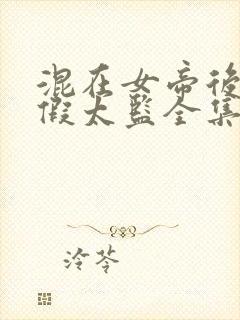 混在女帝後
假太監全集
泠苓